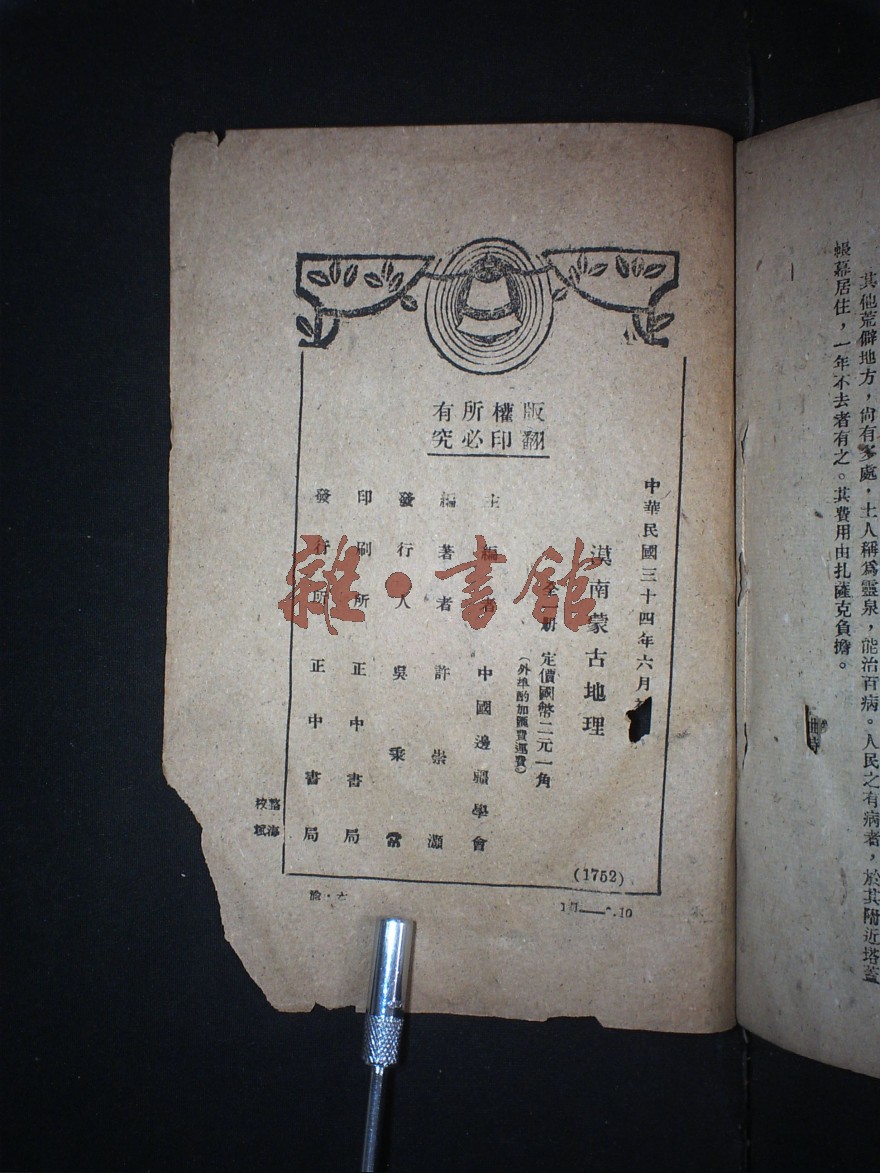 其他荒僻地方，尚有多處，土人稱為靈泉，能治百病。人民之有病者，於其附近塔蓋
帳幕居住，一年不去者有之。其費用由扎薩克負擔。
版權所有
翻印必究
中華民國三十四年六月
漠南蒙古地理
全一册 定價國幣二元一角
（外埠酌加匯費運費）
主編者 中國邊疆學會
編著者 許崇灝
發行人 吳秉常
印刷所 正中書局
發行所 正中書局
(1752)
校
海
滬
雜·書館